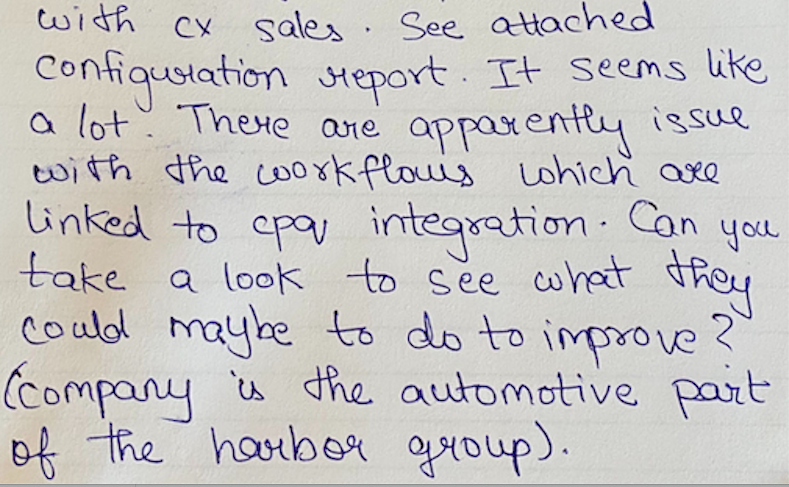 with cx sales. See attached
configuration report. It seems like
a lot. There are apparently issue
with the workflows which are
linked to cpq integration. Can you
take a look to see what they
could maybe to do to improve?
(company is the automotive part
of the harbor group).